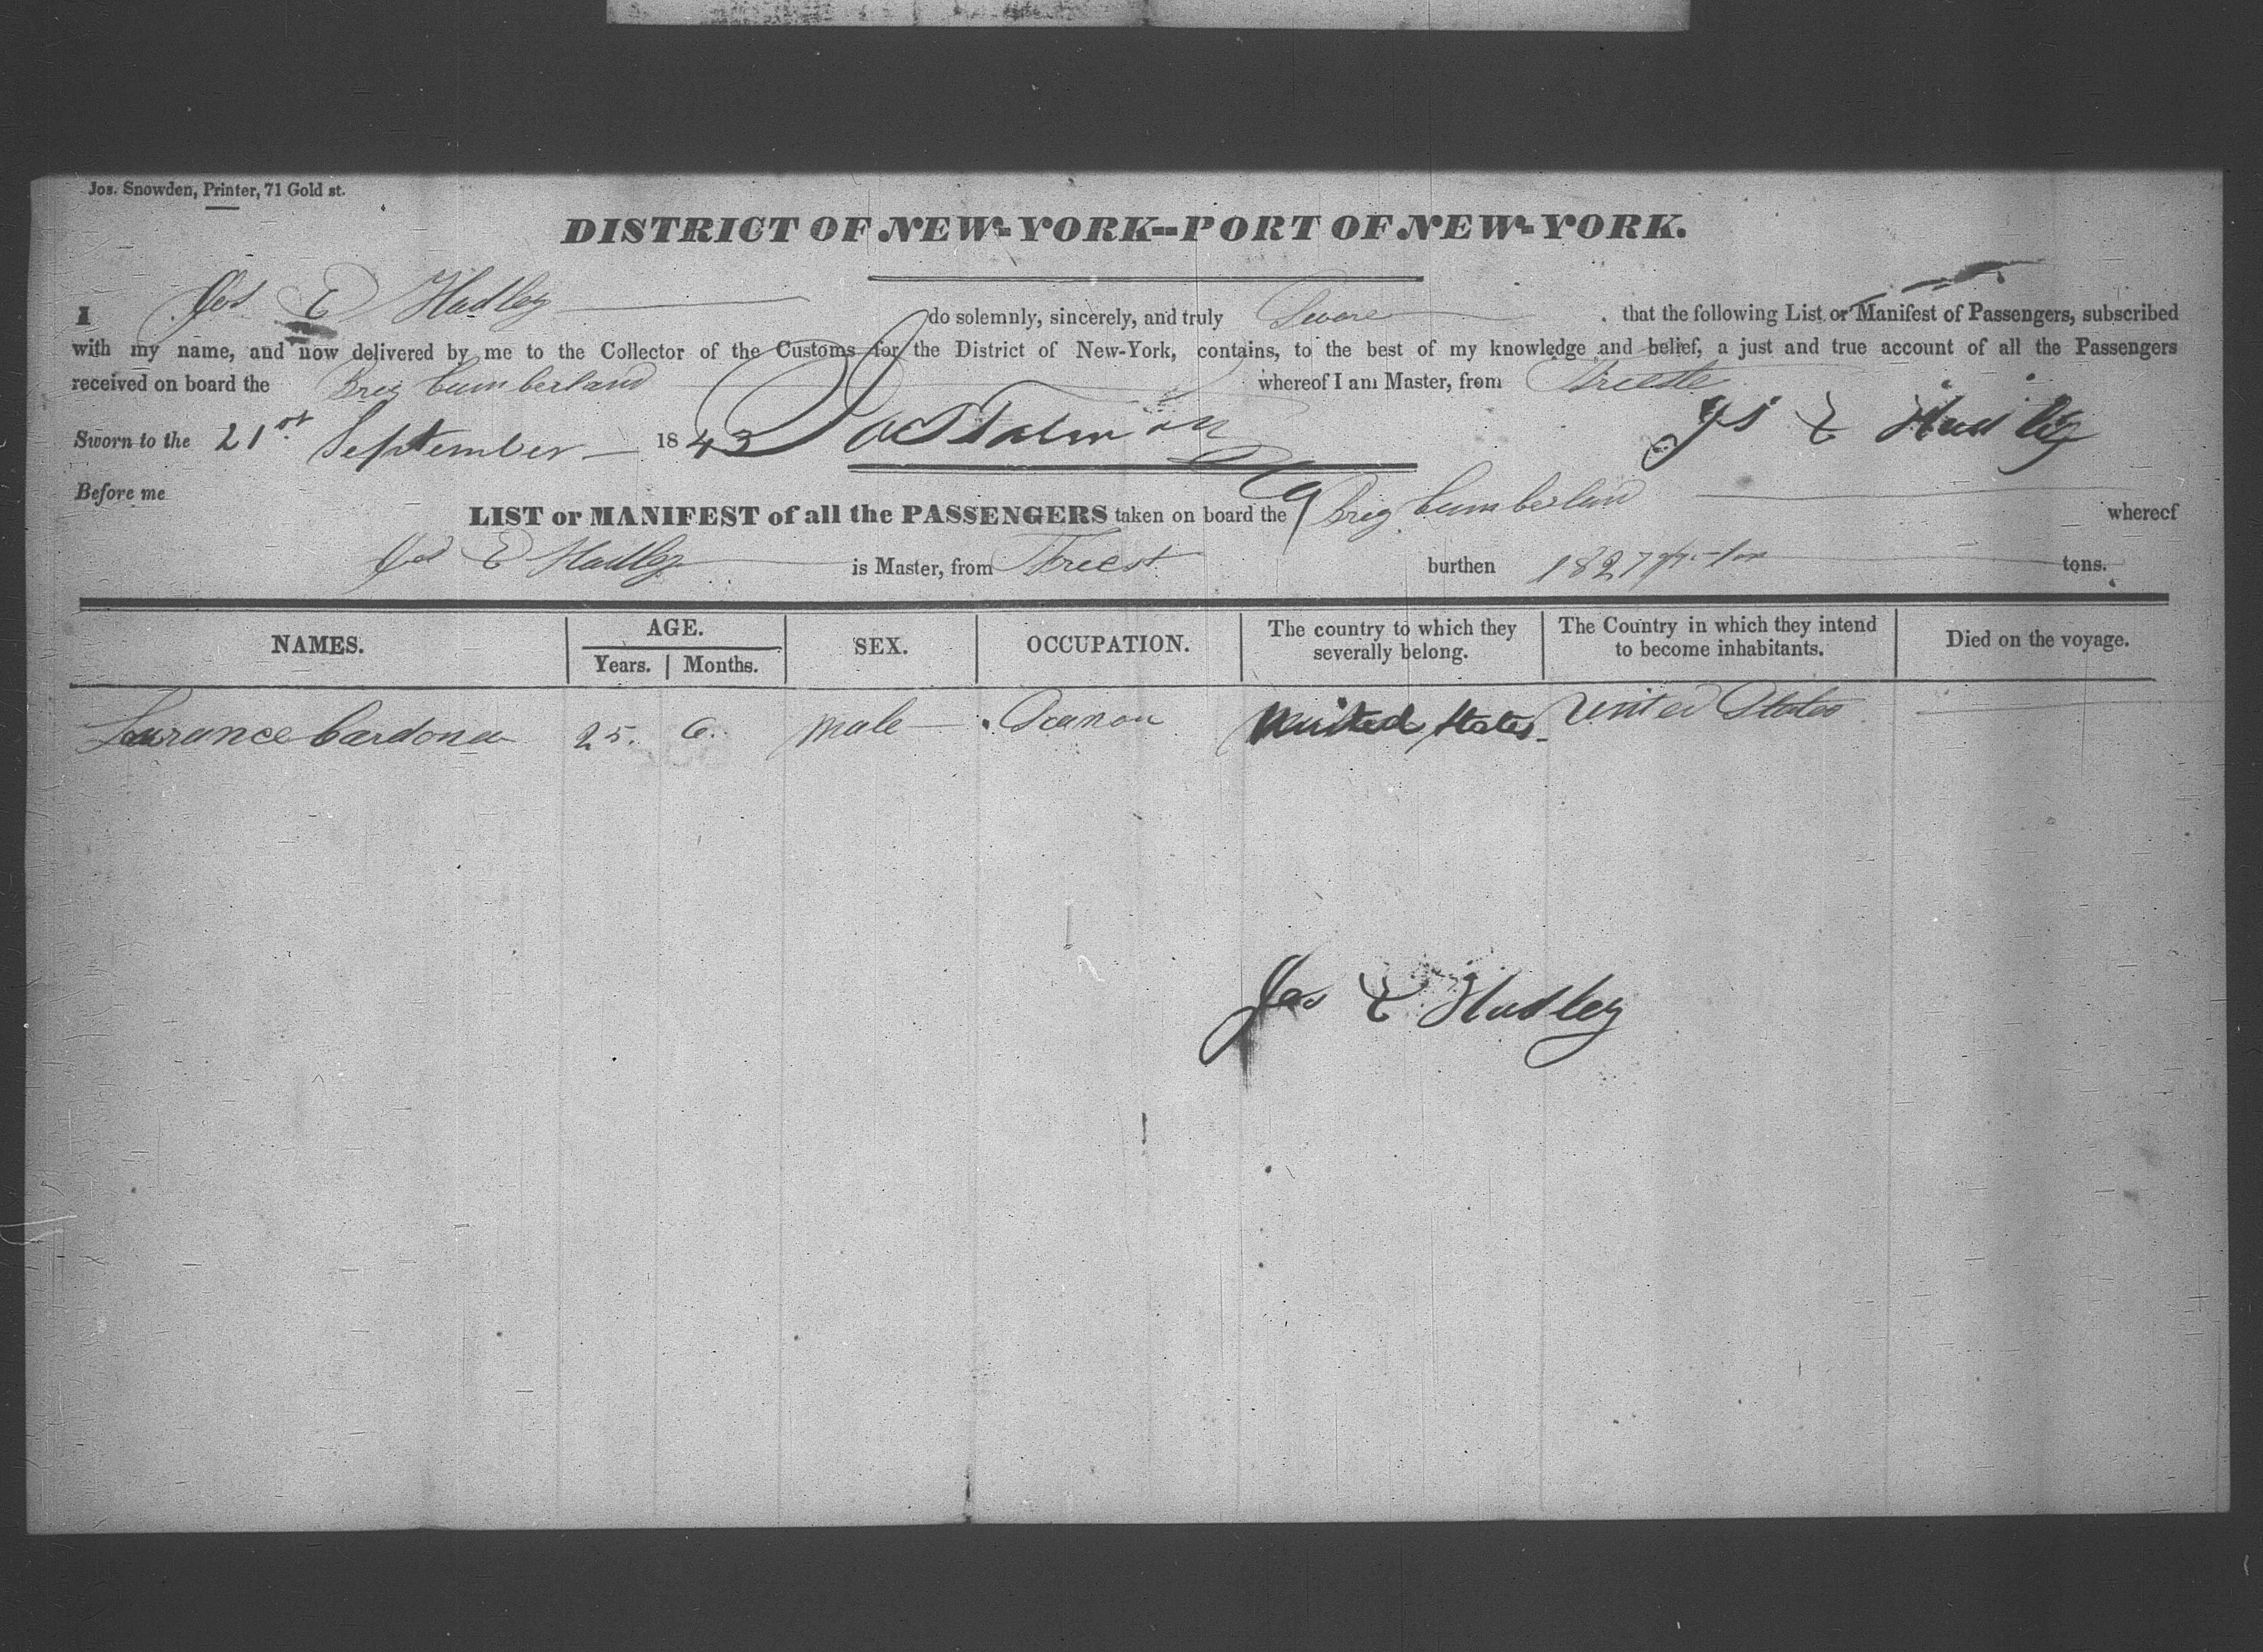 Jos. Snowden, Printer, 71 Gold st.
DISTRICT OF NEW-YORK--PORT OF NEW-YORK.
I Jos E Hadley do solemnly, sincerely, and truly Swear that the following List or Manifest of Passengers, subscribed
with my name, and now delivered by me to the Collector of the Customs for the District of New-York, contains, to the best of my knowledge and belief, a just and true account of all the Passengers
received on board the Brig Cumberland whereof I am Master, from Trieste
Sworn to the 21st September 1843 Jos E Hadley
Before me
LIST or MANIFEST of all the PASSENGERS taken on board the Brig Cumberland whereof
Jos E Hadley is Master, from Triest burthen 182 tons.
NAMES. AGE. SEX. OCCUPATION. The country to which they severally belong. The Country in which they intend to become inhabitants. Died on the voyage.
Years. Months.
Laurance Cardona 25. 6. Male United States United States
Jos E Hadley